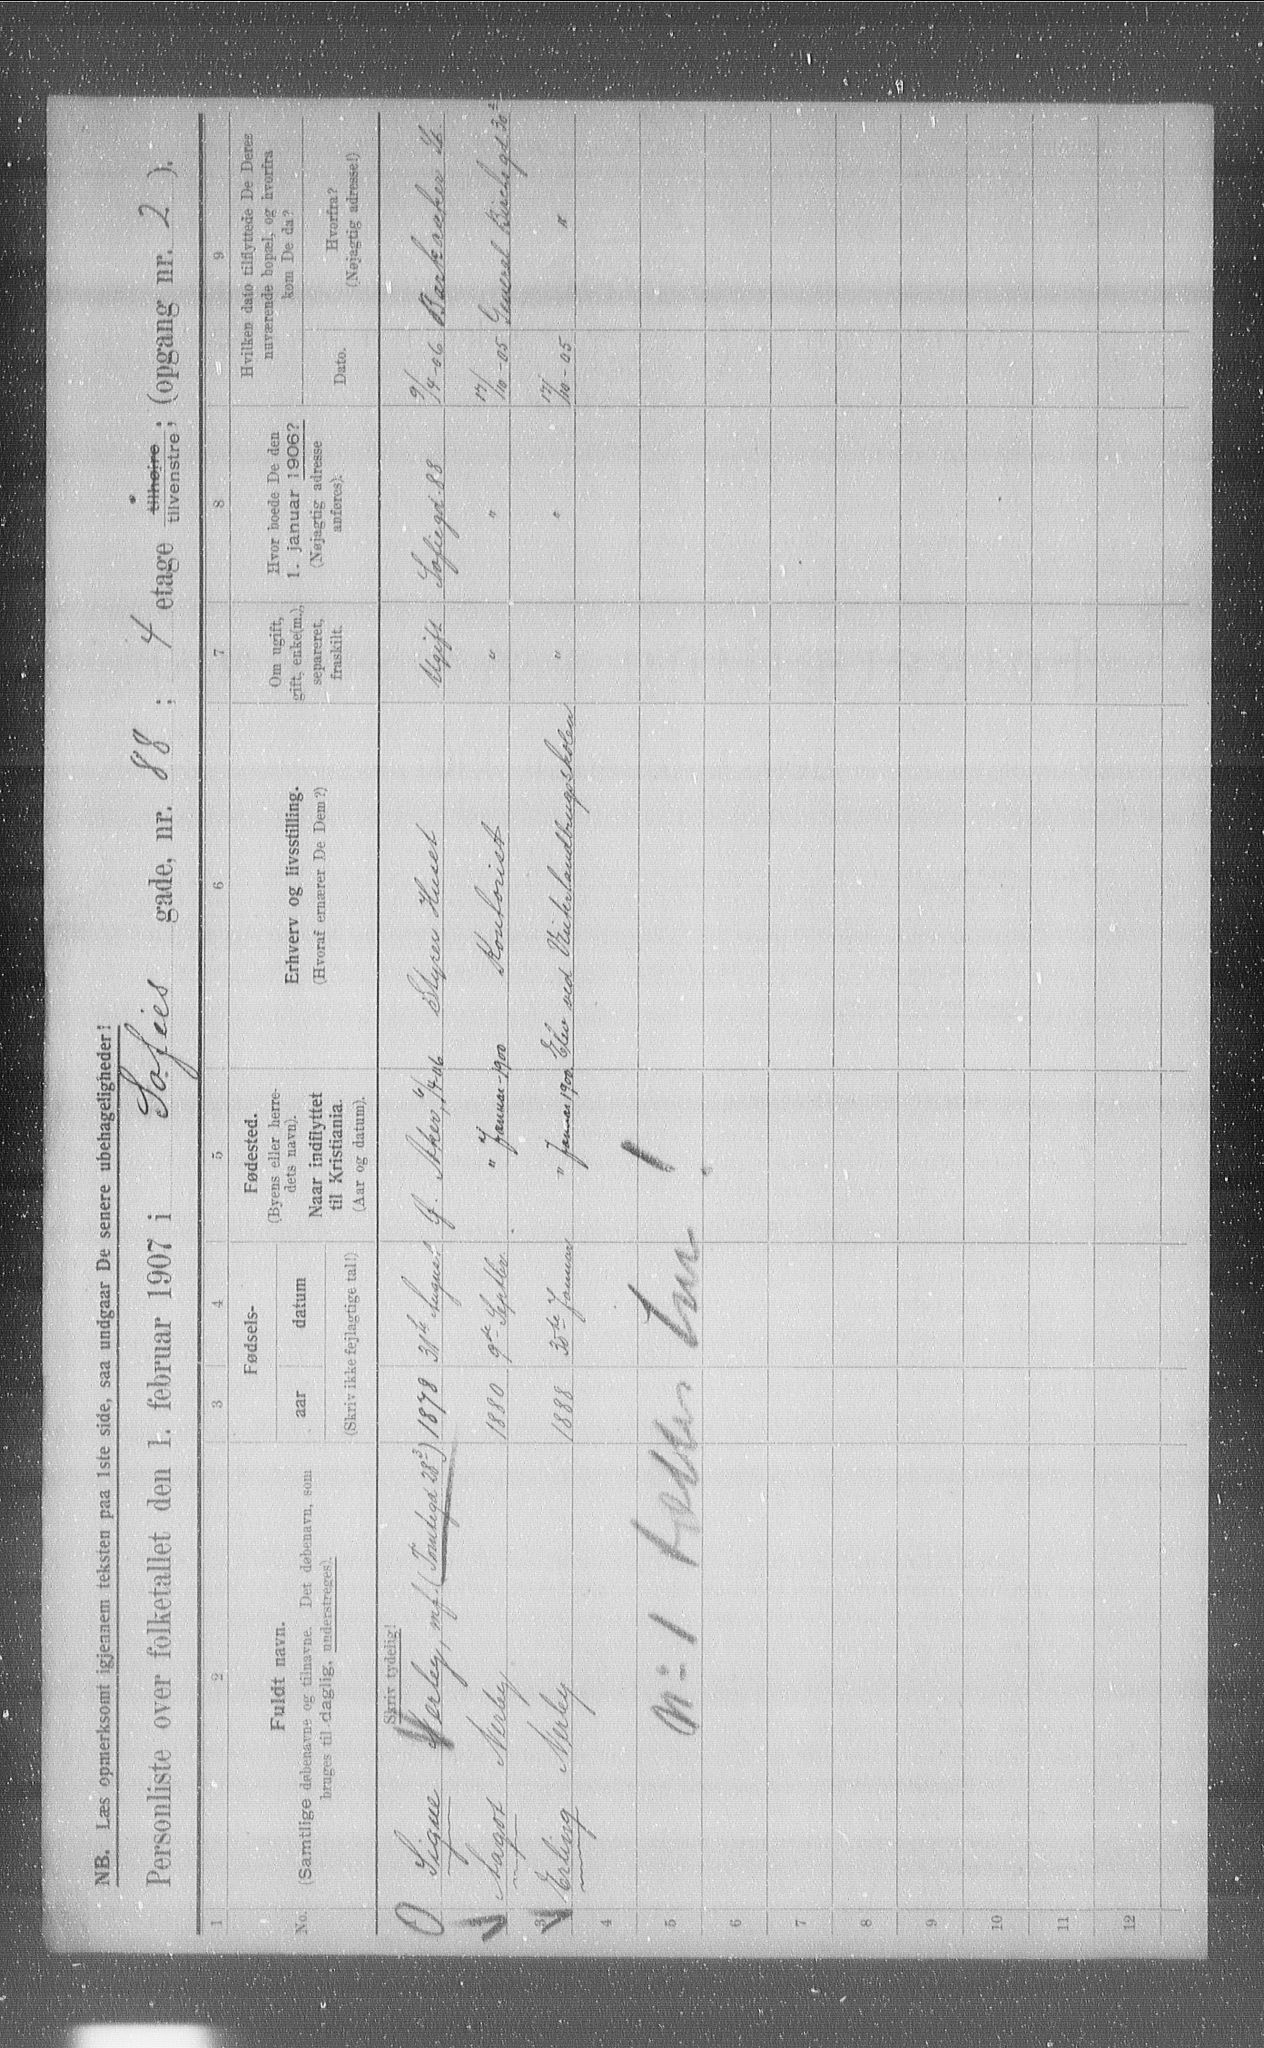 NB. Læs opmerksomt igjennem teksten paa 1ste side, saa undgaar De senere ubehageligheder!
Personliste over folketallet den 1. februar 1907 i Sofies gade, nr. 88 ; 4 etage tilhøire tilvenstre ; (opgang nr. 2 ).
1 2 3 4 5 6 7 8 9
No.
Fuldt navn.
(Samtlige døbenavne og tilnavne. Det døbenavn, som
bruges til daglig, understreges).
Fødsels-
aar datum
(Skriv ikke fejlagtige tal!)
Fødested.
(Byens eller herre-
dets navn).
Naar indflyttet
til Kristiania.
(Aar og datum).
Erhverv og livsstilling.
(Hvoraf ernærer De Dem?)
Om ugift,
gift, enke(m.),
separeret,
fraskilt.
Hvor boede De den
1. januar 1906?
(Nøjagtig adresse
anføres).
Hvilken dato tilflyttede De Deres
nuværende bopæl, og hvorfra
kom De da?
Dato.
Hvorfra?
(Nøjagtig adresse!)
Skriv tydelig!
O Signe Nerby, mf. 1878 31te August Aker, Styrer Huset Ugift Sofiegd. 88 9/4-06
Aagot Nerby 1880 9de Septbr. " Januar 1900 Kontorist " " 17/10-05 General Birchsgd 30
3 Erling Nerby 1888 30te Januar " Januar 1900 Elev ved " " 17/10-05 "
4
5
6
7
8
9
10
11
12